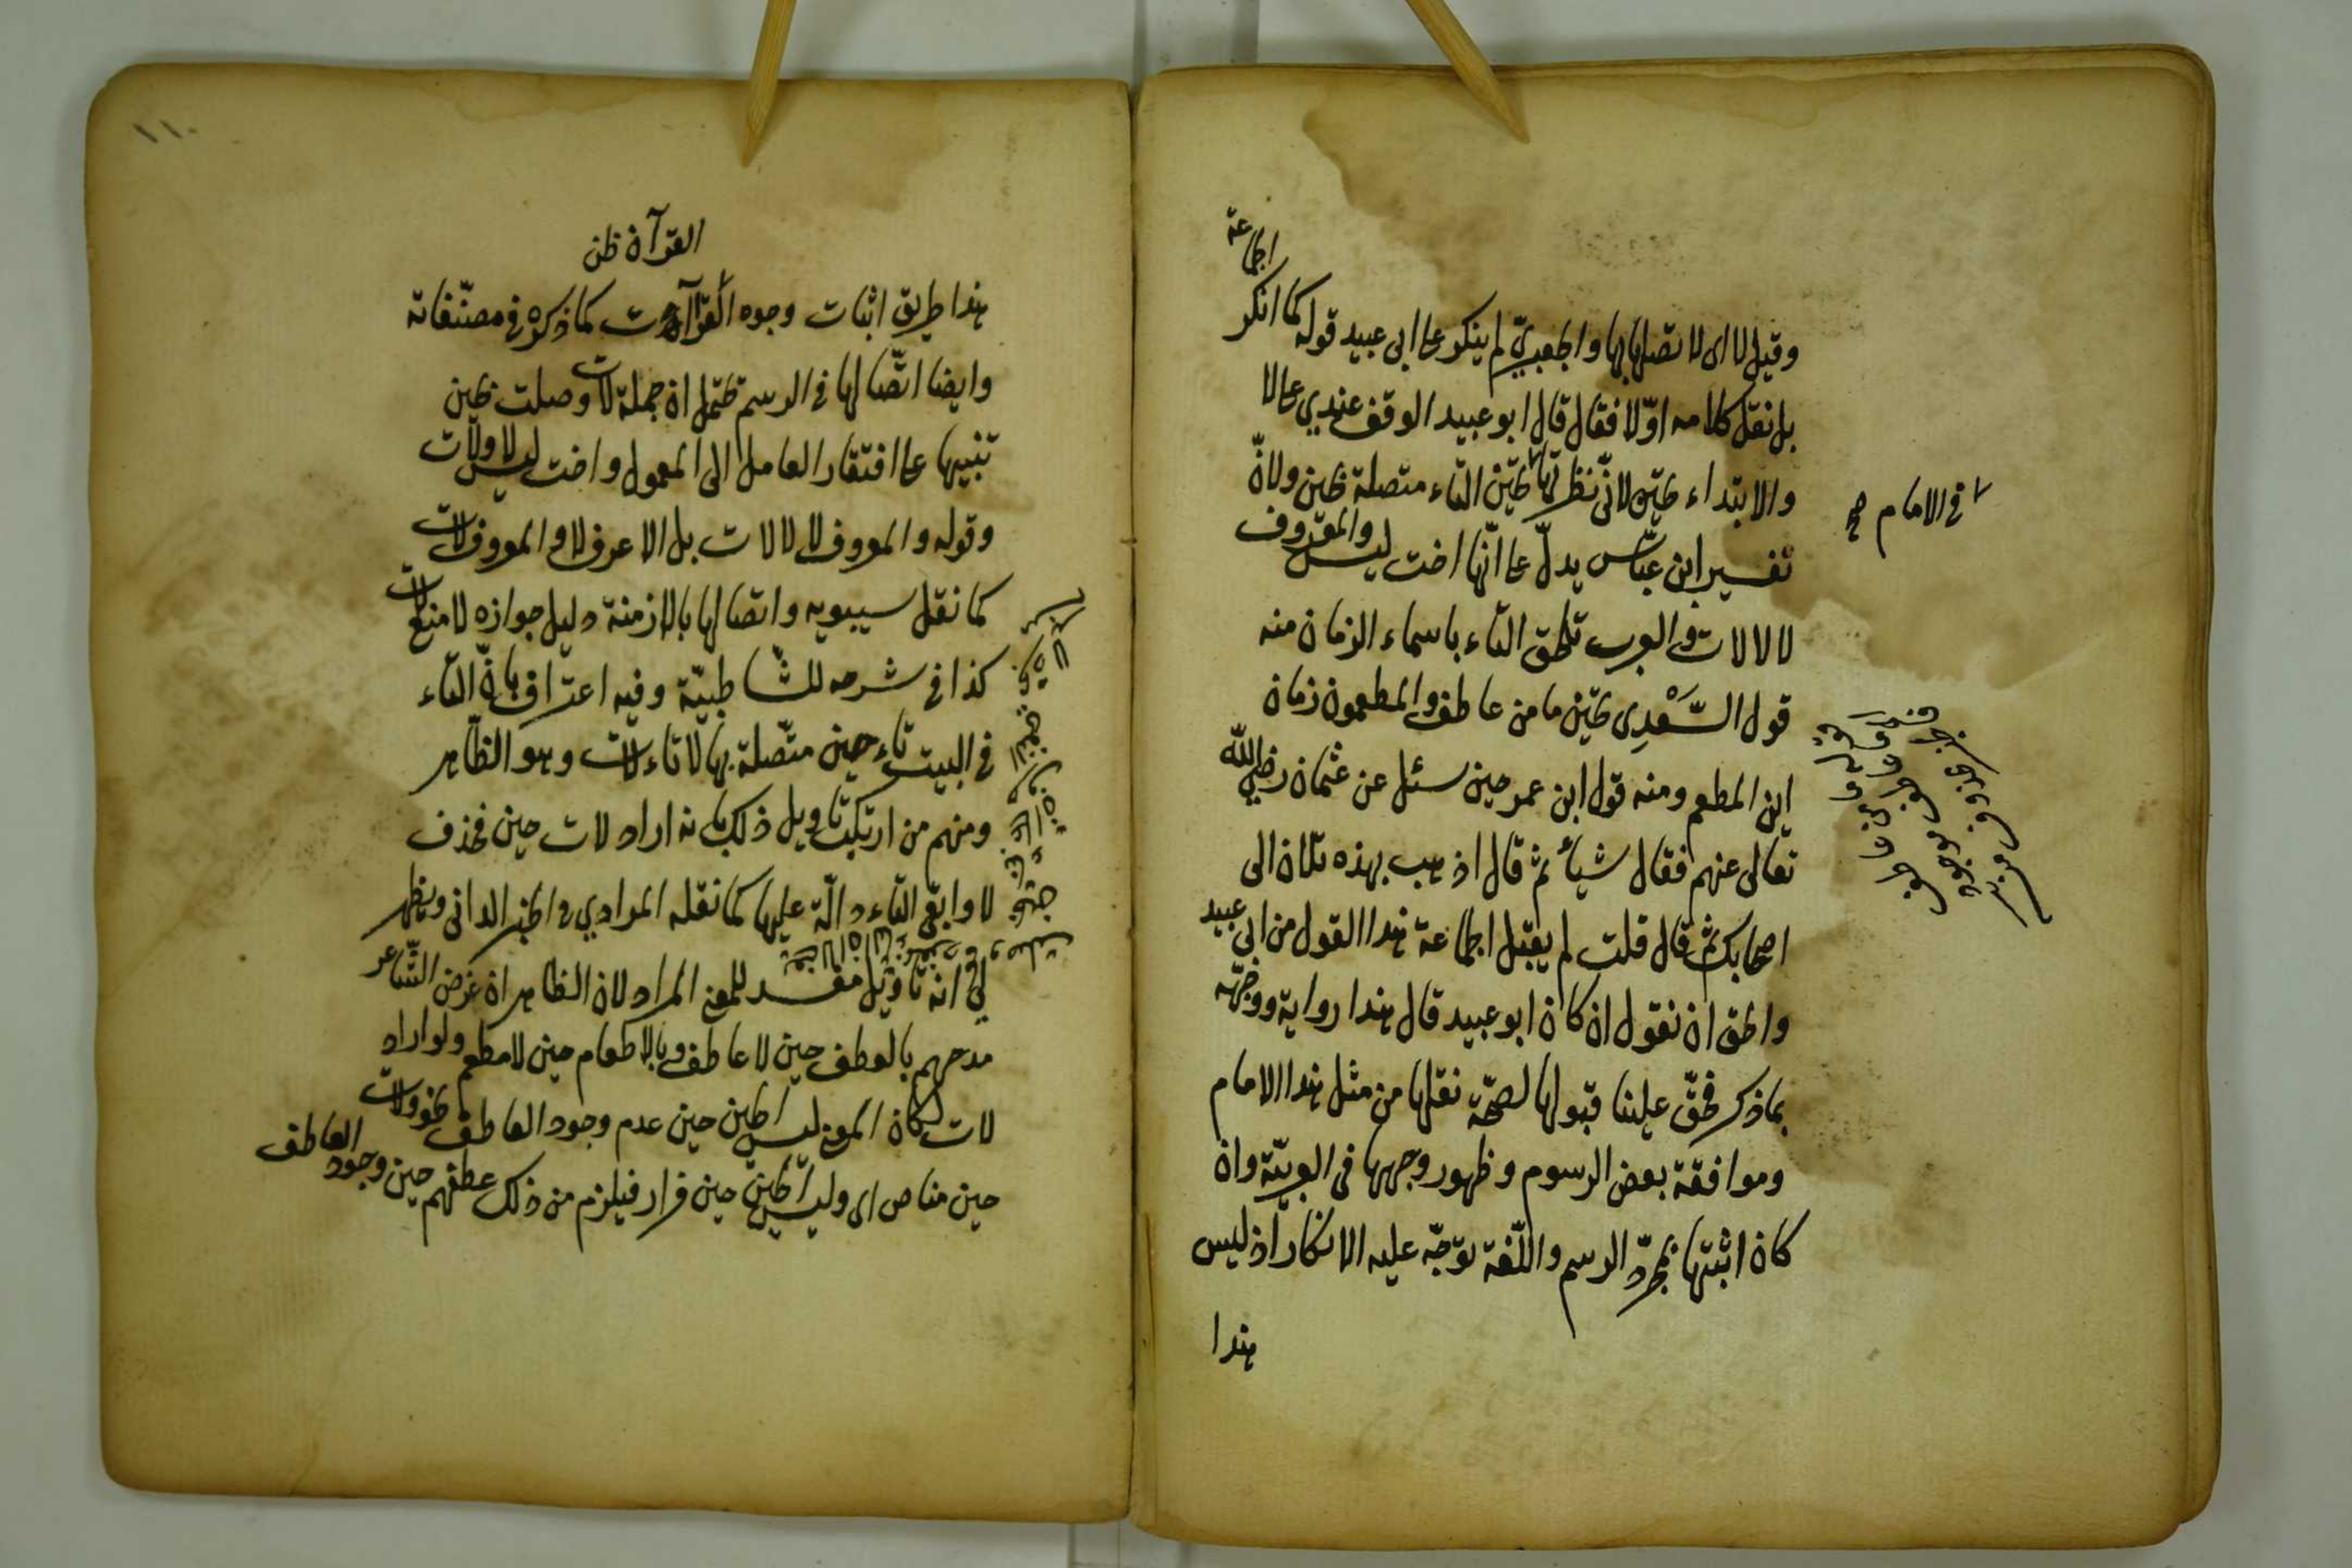 وقيل لا اى لا تصلها بها والجعبريّ لم ينكر على ابى عبيد قوله كما انكر
الجماعة
بل نقل كلامه اوّلا فقال قال ابو عبيد الوقف عندي على لا
والابتداء تحين لانّى نظرتها تحين التاء متصلة بحين ولانّ
تفسير ابن عبّاس يدلّ على انّها اخت ليس والمعروف
لا لا لات والعرب تلحق التاء باسماء الزمان منه
قول السَّعْدِى تحين ما من عاطف والمطعمون زمان
اين المطعم ومنه قول ابن عمر حين سئل عن عثمان رضي الله
تعالى عنهم فقال شيأ ثم قال اذهب بهذه تلان الى
اصحابك ثم قال قلت لم يقبل الجماعة هذا القول من ابى عبيد
والحق ان نقول ان كان ابو عبيد قال هذا رواية ووجّهه
بما ذكر فحقّ علينا قبولها لصحّة نقلها من مثل هذا الامام
وموافقة بعض الرسوم وظهور وجهها فى العربيّة وان
كان اثبتها بمجرّد الرسم واللّغة توجّه عليه الانكار اذ ليس
هذا
فى الامام صح
١١٠
القرآن ظن
هذا طريق اثبات وجوه القراآت كما ذكره فى مصنّفاته
وايضا اتّصالها فى الرسم تحتمل ان جملة لات وصلت بحين
تنبيها على افتقار العامل الى المعمول واخت ليس لا ولات
وقوله والمعروف لا لا لات بل الاعرف لا والمعروف لات
كما نقل سيبويه واتصالها بالازمنة دليل جوازه لا منع لات
كذا فى شرحه للشّاطبيّة وفيه اعتراف بانّ التاء
فى البيت تاء حين متّصلة بها لا تاء لات وهو الظّاهر
ومنهم من ارتكب تاويل ذلك بانه اراد لات حين فحذف
لا وابقى التاء دالّة عليها كما نقله المرادي فى الجنى الدانى ويظهر
لى انه تاويل مفسد للمعنى المراد لان الظاهر ان غرض الشّاعر
مدحهم بالعطف حين لا عاطف وبالاطعام حين لا مطعم ولو اراد
لات لكان المعنى ليس الحين حين عدم وجود العاطف نحو ولات
حين مناص اى وليس الحين حين فرار فيلزم من ذلك عطفهم حين وجود العاطف